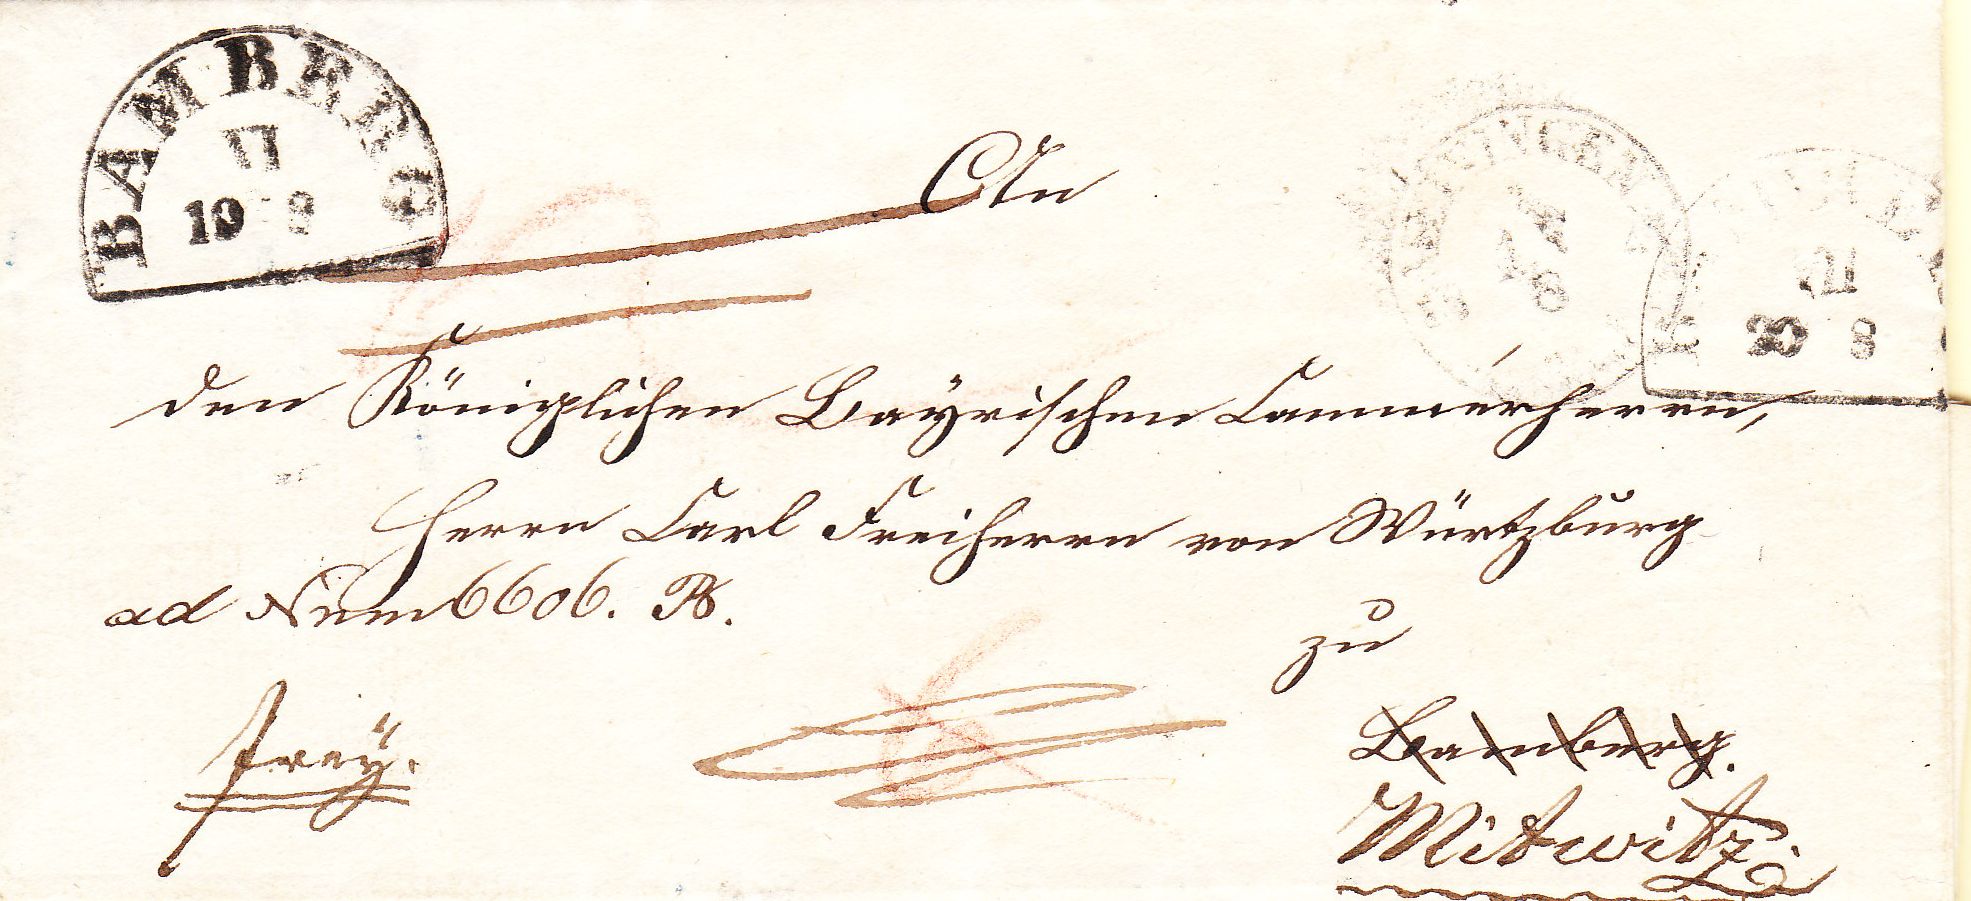 BAMBERG
VI
19 8
An
den Königlichen Bayrischen Cammerherrn,
Herrn Carl Freiherrn von Würtzburg
ad Num 6606.
zu
frey.
Bamberg.
Mitwitz
VII
20 8